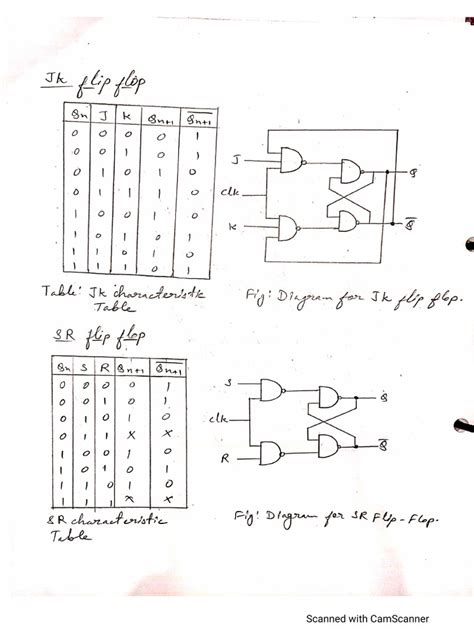 JK flip flop
Qn J K Qn+1 Q̅n+1
0 0 0 0 1
0 0 1 0 1
0 1 0 1 0
0 1 1 1 0
1 0 0 1 0
1 0 1 0 1
1 1 0 1 0
1 1 1 0 1
Table: Jk characteristic
Table
J
clk
K
Q
Q̅
Fig: Diagram for Jk flip flop.
SR flip flop
Qn S R Qn+1 Q̅n+1
0 0 0 0 1
0 0 1 0 1
0 1 0 1 0
0 1 1 x x
1 0 0 1 0
1 0 1 0 1
1 1 0 1 0
1 1 1 x x
SR characteristic
Table
S
clk
R
Q
Q̅
Fig: Diagram for SR Flip-Flop.
Scanned with CamScanner